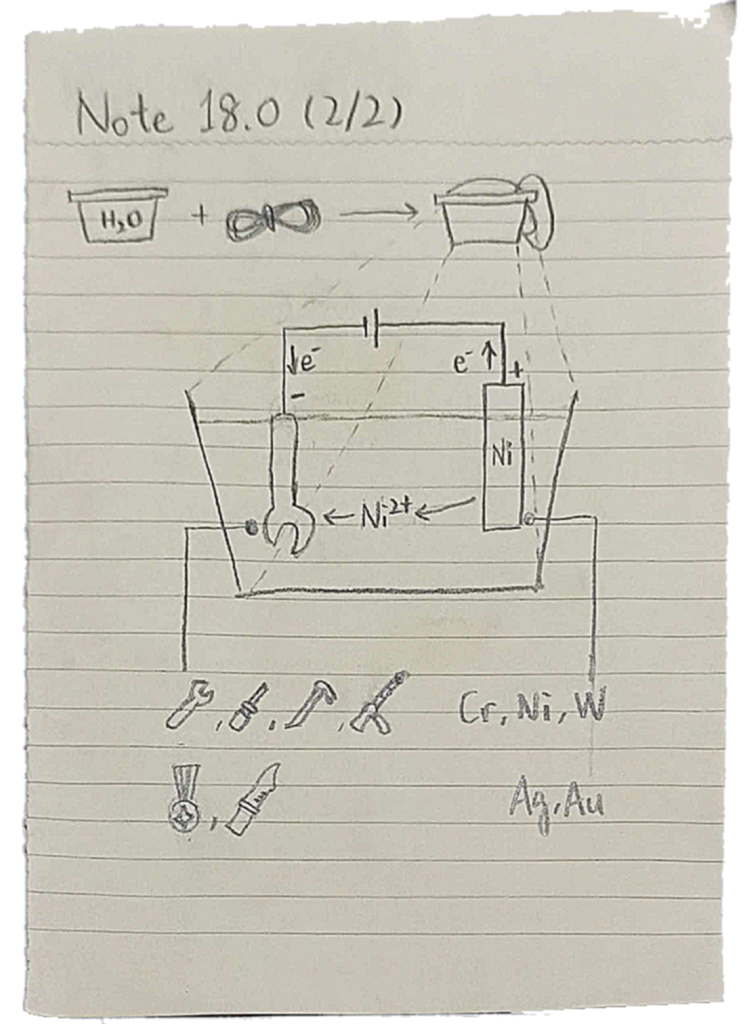 Note 18.0 (2/2)
H₂O + →
e⁻ e⁻
- +
Ni
Ni²⁺
Cr, Ni, W
Ag, Au